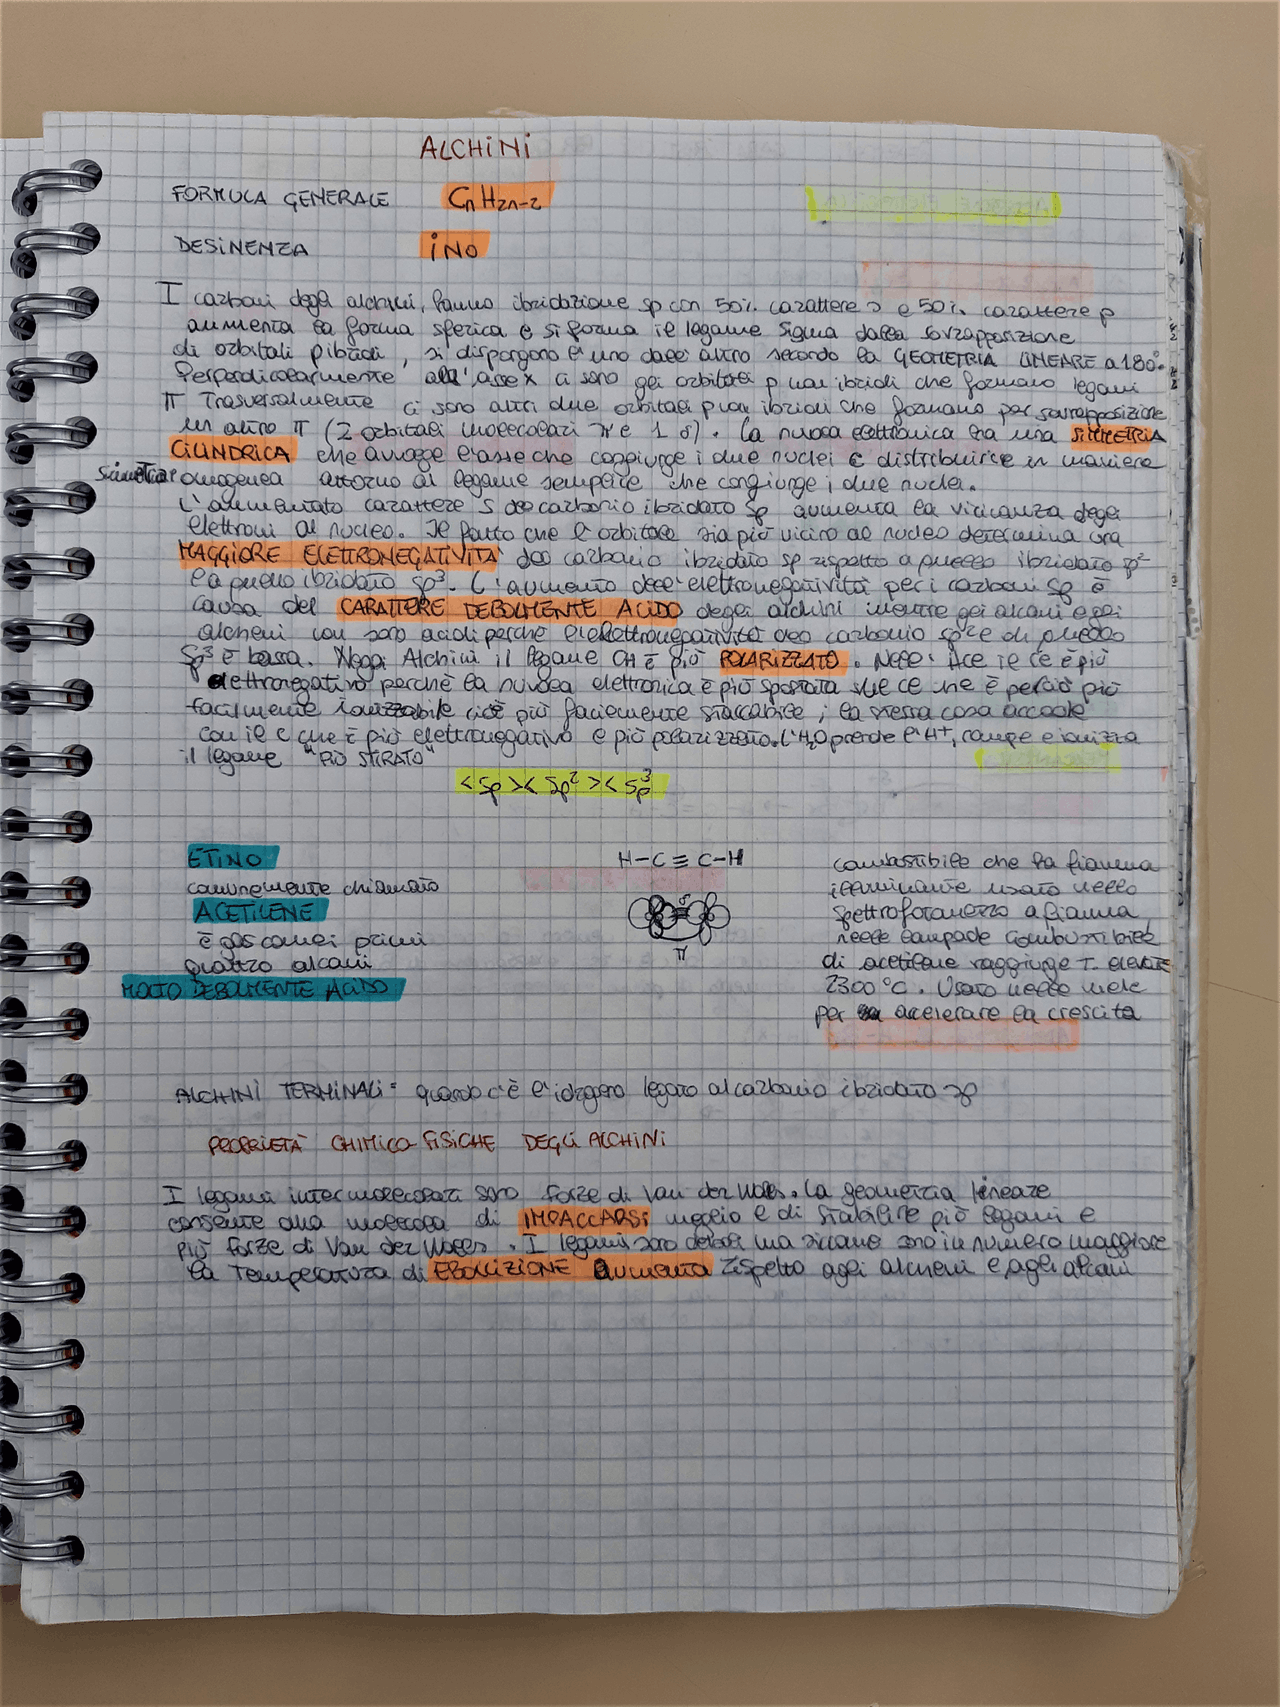 ALCHINI
FORMULA GENERALE CnH2n-2
DESINENZA INO
I carboni degli alchini, hanno ibridazione sp con 50%. carattere s e 50%. carattere p
aumenta la forma sferica e si forma il legame sigma dalla sovrapposizione
di orbitali p ibridi, si dispongono l'uno dall'altro secondo la GEOMETRIA LINEARE a 180°.
Perpendicolarmente all'asse x ci sono gli orbitali p non ibridi che formano legami
π Trasversalmente ci sono altri due orbitali p non ibridi che formano per sovrapposizione
un altro π (2 orbitali molecolari π e 1 σ). La nuvola elettronica ha una SIMMETRIA
CILINDRICA che avvolge l'asse che congiunge i due nuclei e distribuirsi in maniera
omogenea attorno al legame semplice che congiunge i due nuclei.
L'aumentato carattere s del carbonio ibridato sp aumenta la vicinanza degli
elettroni al nucleo. Il fatto che l'orbitale sia più vicino al nucleo determina una
MAGGIORE ELETTRONEGATIVITÀ del carbonio ibridato sp rispetto a quello ibridato sp²
e a quello ibridato sp³. L'aumento dell'elettronegatività per i carboni sp è
causa del CARATTERE DEBOLMENTE ACIDO degli alchini mentre gli alcani e gli
alcheni non sono acidi perchè l'elettronegatività del carbonio sp² e di quello
sp³ è bassa. Negli Alchini il legame CH è più POLARIZZATO. Nell' HCl il Cl è più
elettronegativo perchè la nuvola elettronica è più spostata sul Cl che è perciò più
facilmente ionizzabile cioè più facilmente staccabile; la stessa cosa accade
con il C che è più elettronegativo e più polarizzato. L'H2O prende l'H⁺, rompe e ionizza
il legame "PIÙ STIRATO"
< sp >< sp² >< sp³
ETINO
comunemente chiamato
ACETILENE
è gas come i primi
quattro alcani
MOLTO DEBOLMENTE ACIDO
H-C≡C-H
σ
π
combustibile che ha fiamma
illuminante usato nello
spettrofotometro a fiamma
nelle lampade combustibile
di acetilene raggiunge T. elevate
2300 °C. Usato nelle mele
per accelerare la crescita
ALCHINI TERMINALI = quando c'è l'idrogeno legato al carbonio ibridato sp
PROPRIETÀ CHIMICO-FISICHE DEGLI ALCHINI
I legami intermolecolari sono forze di Van der Walls. La geometria lineare
consente alla molecola di IMPACCARSI meglio e di stabilire più legami e
più forze di Van der Walls. I legami sono deboli ma siccome sono in numero maggiore
la Temperatura di EBOLLIZIONE aumenta rispetto agli alcheni e agli alcani